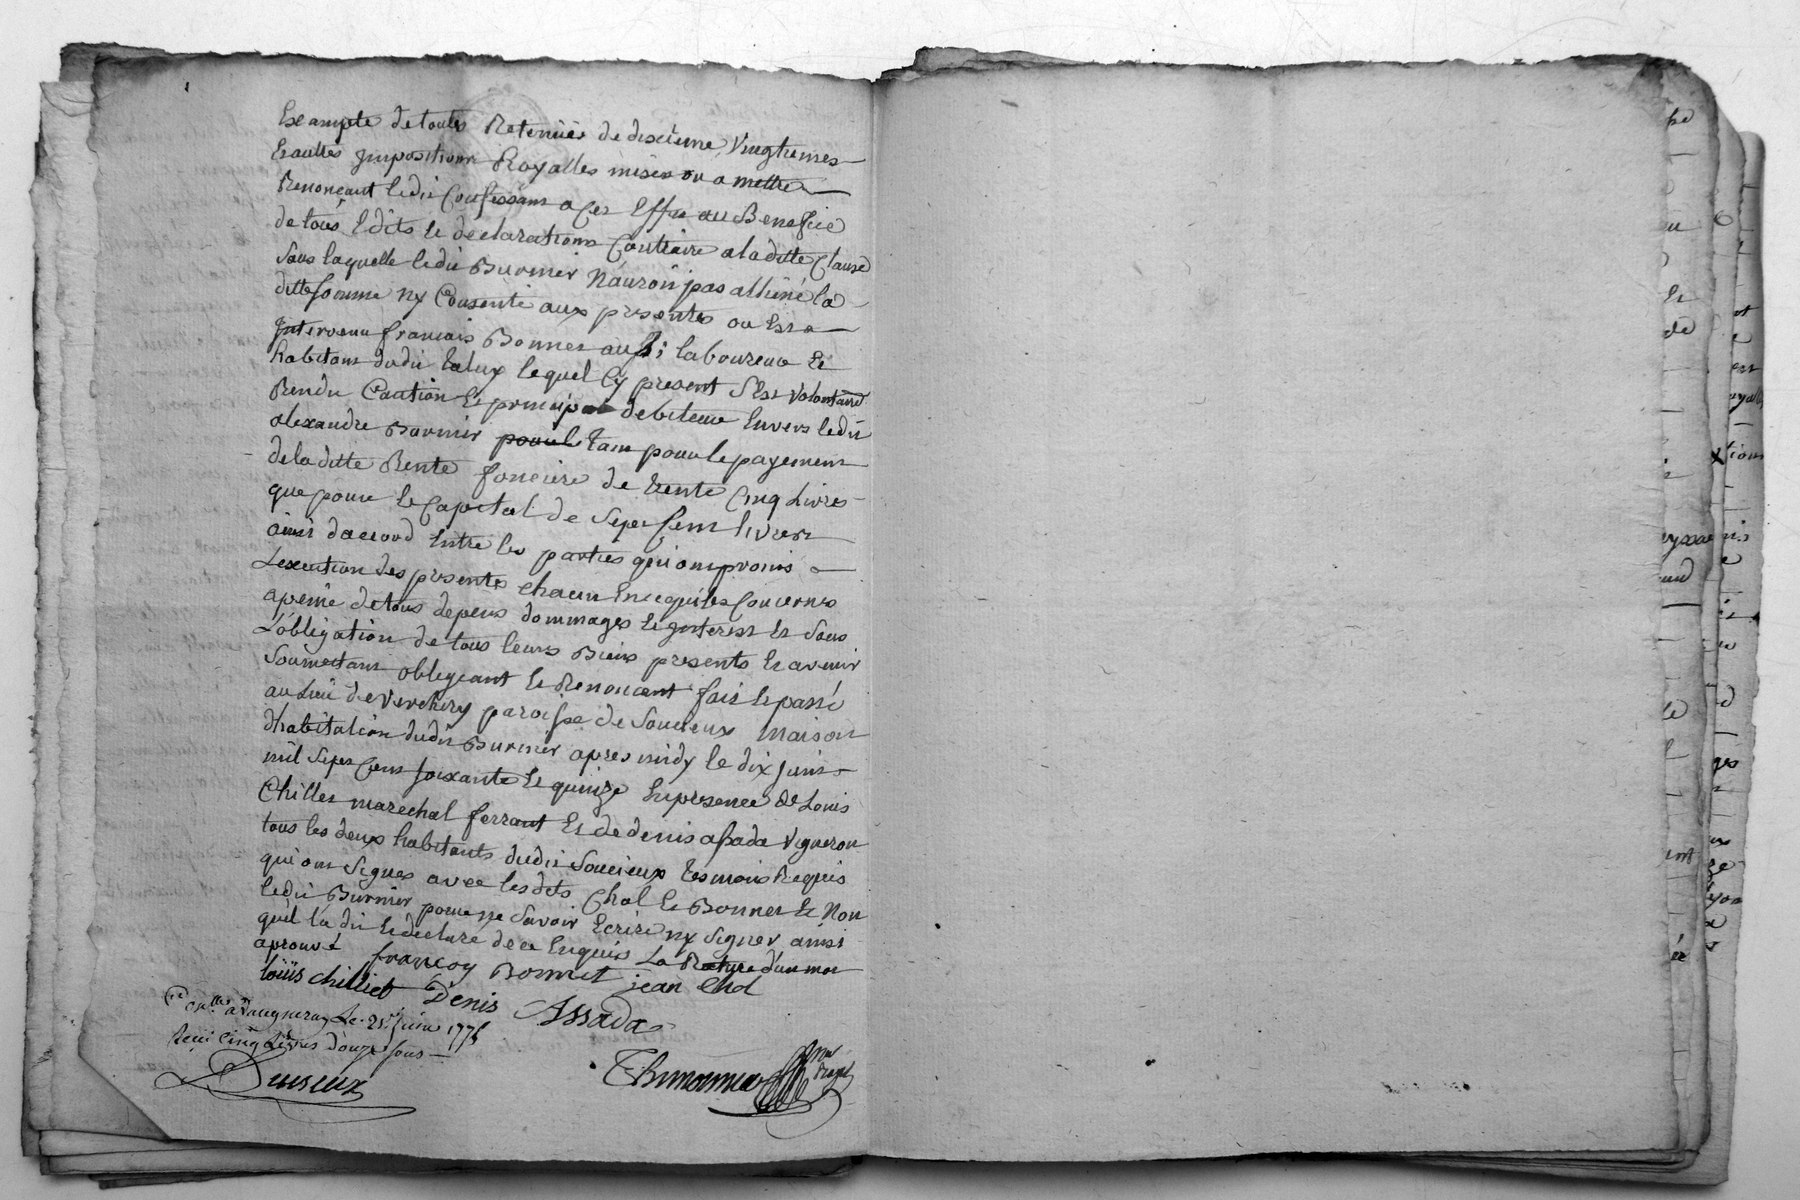 Exampte de toutes Retenües de dixième, Vingtiemes
Et autres impositions Royalles mises ou a mettre
Renonçant ledit Confessant a Cet Effet au Benefice
de tous Edits et declarations Contraire a la ditte Clause
Sans laquelle ledit Burnier N'auroit pas alliené la
ditte somme ny Consenti aux presentes ou Est
Intervenu francois Bonnet aussi laboureur Et
habitant dudit lequel Cy present S'est volontaire
Rendu Caution Et principal debiteur Envers ledit
alexandre Burnier tant pour le payement
de la ditte Rente fonciere de trente Cinq Livres
que pour le Capital de Sept Cent livres
ainsi d'accord Entre les parties qui ont promis
L'execution des presentes chacun En ce qui les Concerne
a peine de tous depens dommages Et interest Et Sous
L'obligation de tous leurs Biens presents Et avenir
Soumettant obligeant Et Renoncant fait Et passé
au Lieu de Verchery paroisse de Soucieux Maison
d'habitation dudit Burnier apres midy le dix Juin
mil Sept Cent soixante Et quinze En presence de Louis
Chillet marechal ferrant Et de denis assada Vigneron
tous les deux habitants dudit Soucieux temoins Requis
qui ont Signes avec lesdits Chol Et Bonnet Et Non
ledit Burnier pour ne Savoir Ecrire ny Signer ainsi
qu'il l'a dit Et declaré de ce Enquis La Rature d'un mot
aprouvé francoy Bonnet jean Chol
loüis chilliet Denis Assada
Cellé a Vaugneray Le 21 Juin 1775
Recu Cinq Livres douze sous
Thimonnier